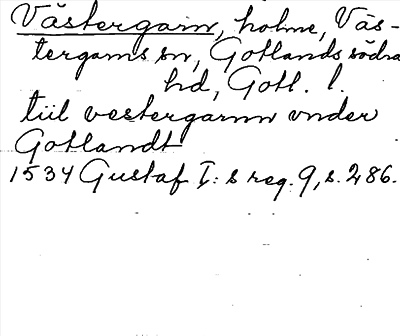 Västergarn, holme, Väs-
tergarns sn, Gotlands södra
hd, Gotl. l.
tiil vestergarnn vnder
Gotlandt
1534 Gustaf I:s reg. 9, s. 286.